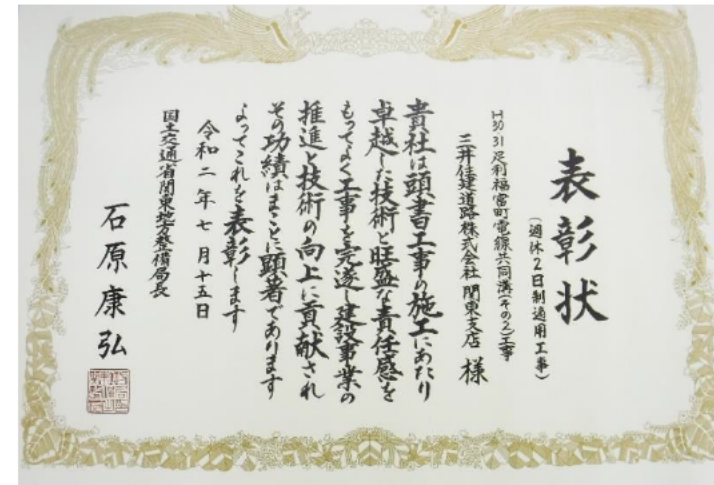 表彰状
(週休2日制適用工事)
H30・31足利福富町電線共同溝(その2)工事
三井住建道路株式会社 関東支店 様
貴社は頭書工事の施工にあたり
卓越した技術と旺盛な責任感を
もってよく工事を完遂し建設事業の
推進と技術の向上に貢献され
その功績はまことに顕著であります
よってこれを表彰します
令和二年七月十五日
国土交通省関東地方整備局長
石原康弘